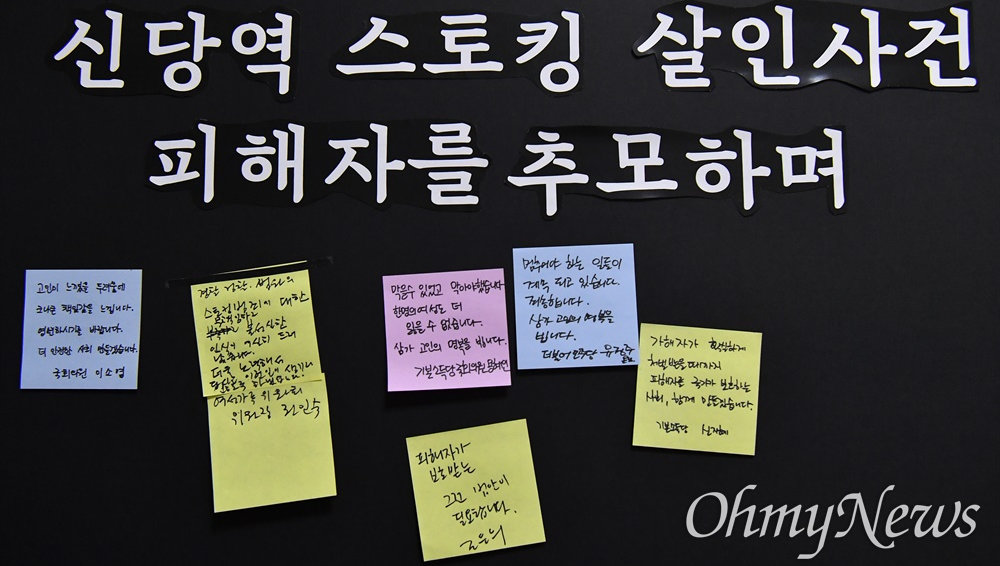 신당역 스토킹 살인사건
피해자를 추모하며
고인이 느꼈을 두려움에
크나큰 책임감을 느낍니다.
영면하시기를 바랍니다.
더 안전한 사회 만들겠습니다.
국회의원 이소영
검찰 경찰. 법원의
스토킹범죄에 대한
인식이
여성가족위원회
위원장 권인숙
막을 수 있었고 막아야했습니다
한명의 여성도 더
잃을 수 없습니다.
삼가 고인의 명복을 빕니다.
기본소득당 국회의원 용혜인
멈추어야 하는 일들이
계속 되고 있습니다.
죄송합니다.
삼가 고인의 명복을
빕니다.
더불어민주당 유정주
가해자가 확실하게
처벌받을때까지
피해자를 국가가 보호하는
사회, 함께 만들겠습니다.
기본소득당 신지혜
피해자가
보호받는
그런 법안이
필요합니다.
OhmyNews